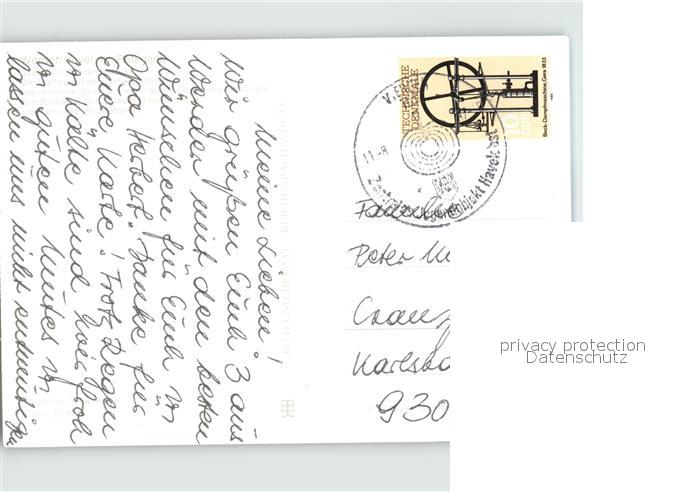 Meine Lieben!
Wir grüßen Euch 3 aus
Werder mit den besten
Wünschen für Euch u.
Opa Herbert. Danke für
Eure Karte! Trotz Regen
u. Kälte sind wir froh
u. guten Mutes u.
lassen uns nicht entmutigen
TECHNISCHE
DENKMALE
Bock-Dampfmaschine, Gera 1833
10
DDR
11.-8.
Zentrales Jugendobjekt Havelobst
Familie
Peter
Karlsba
930
privacy protection
Datenschutz